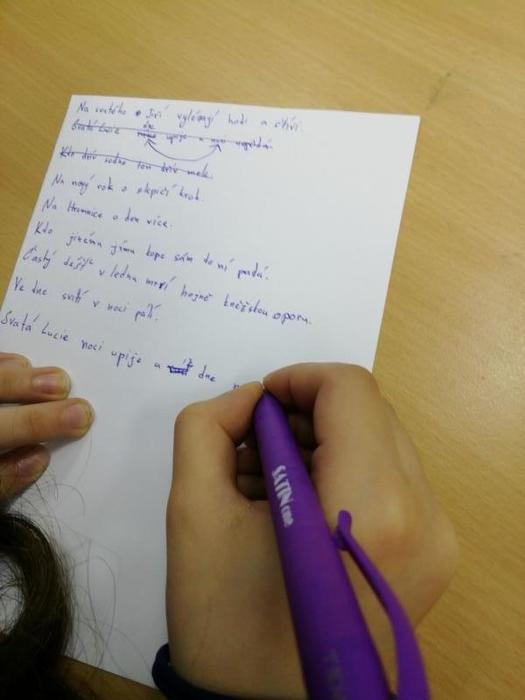 Na svatého Jiří vylézají hadi a štíři.
Svatá Lucie dne upije a noci nepřidá.
Kdo dřív toho ten dřív mele.
Na nový rok o slepičí krok.
Na Hromnice o den více.
Kdo jinému jámu kope sám do ní padá.
Častý déšť v lednu mrví hojně kněžskou oporu.
Ve dne svítí v noci pálí.
Svatá Lucie noci upije a dne
SATIN one